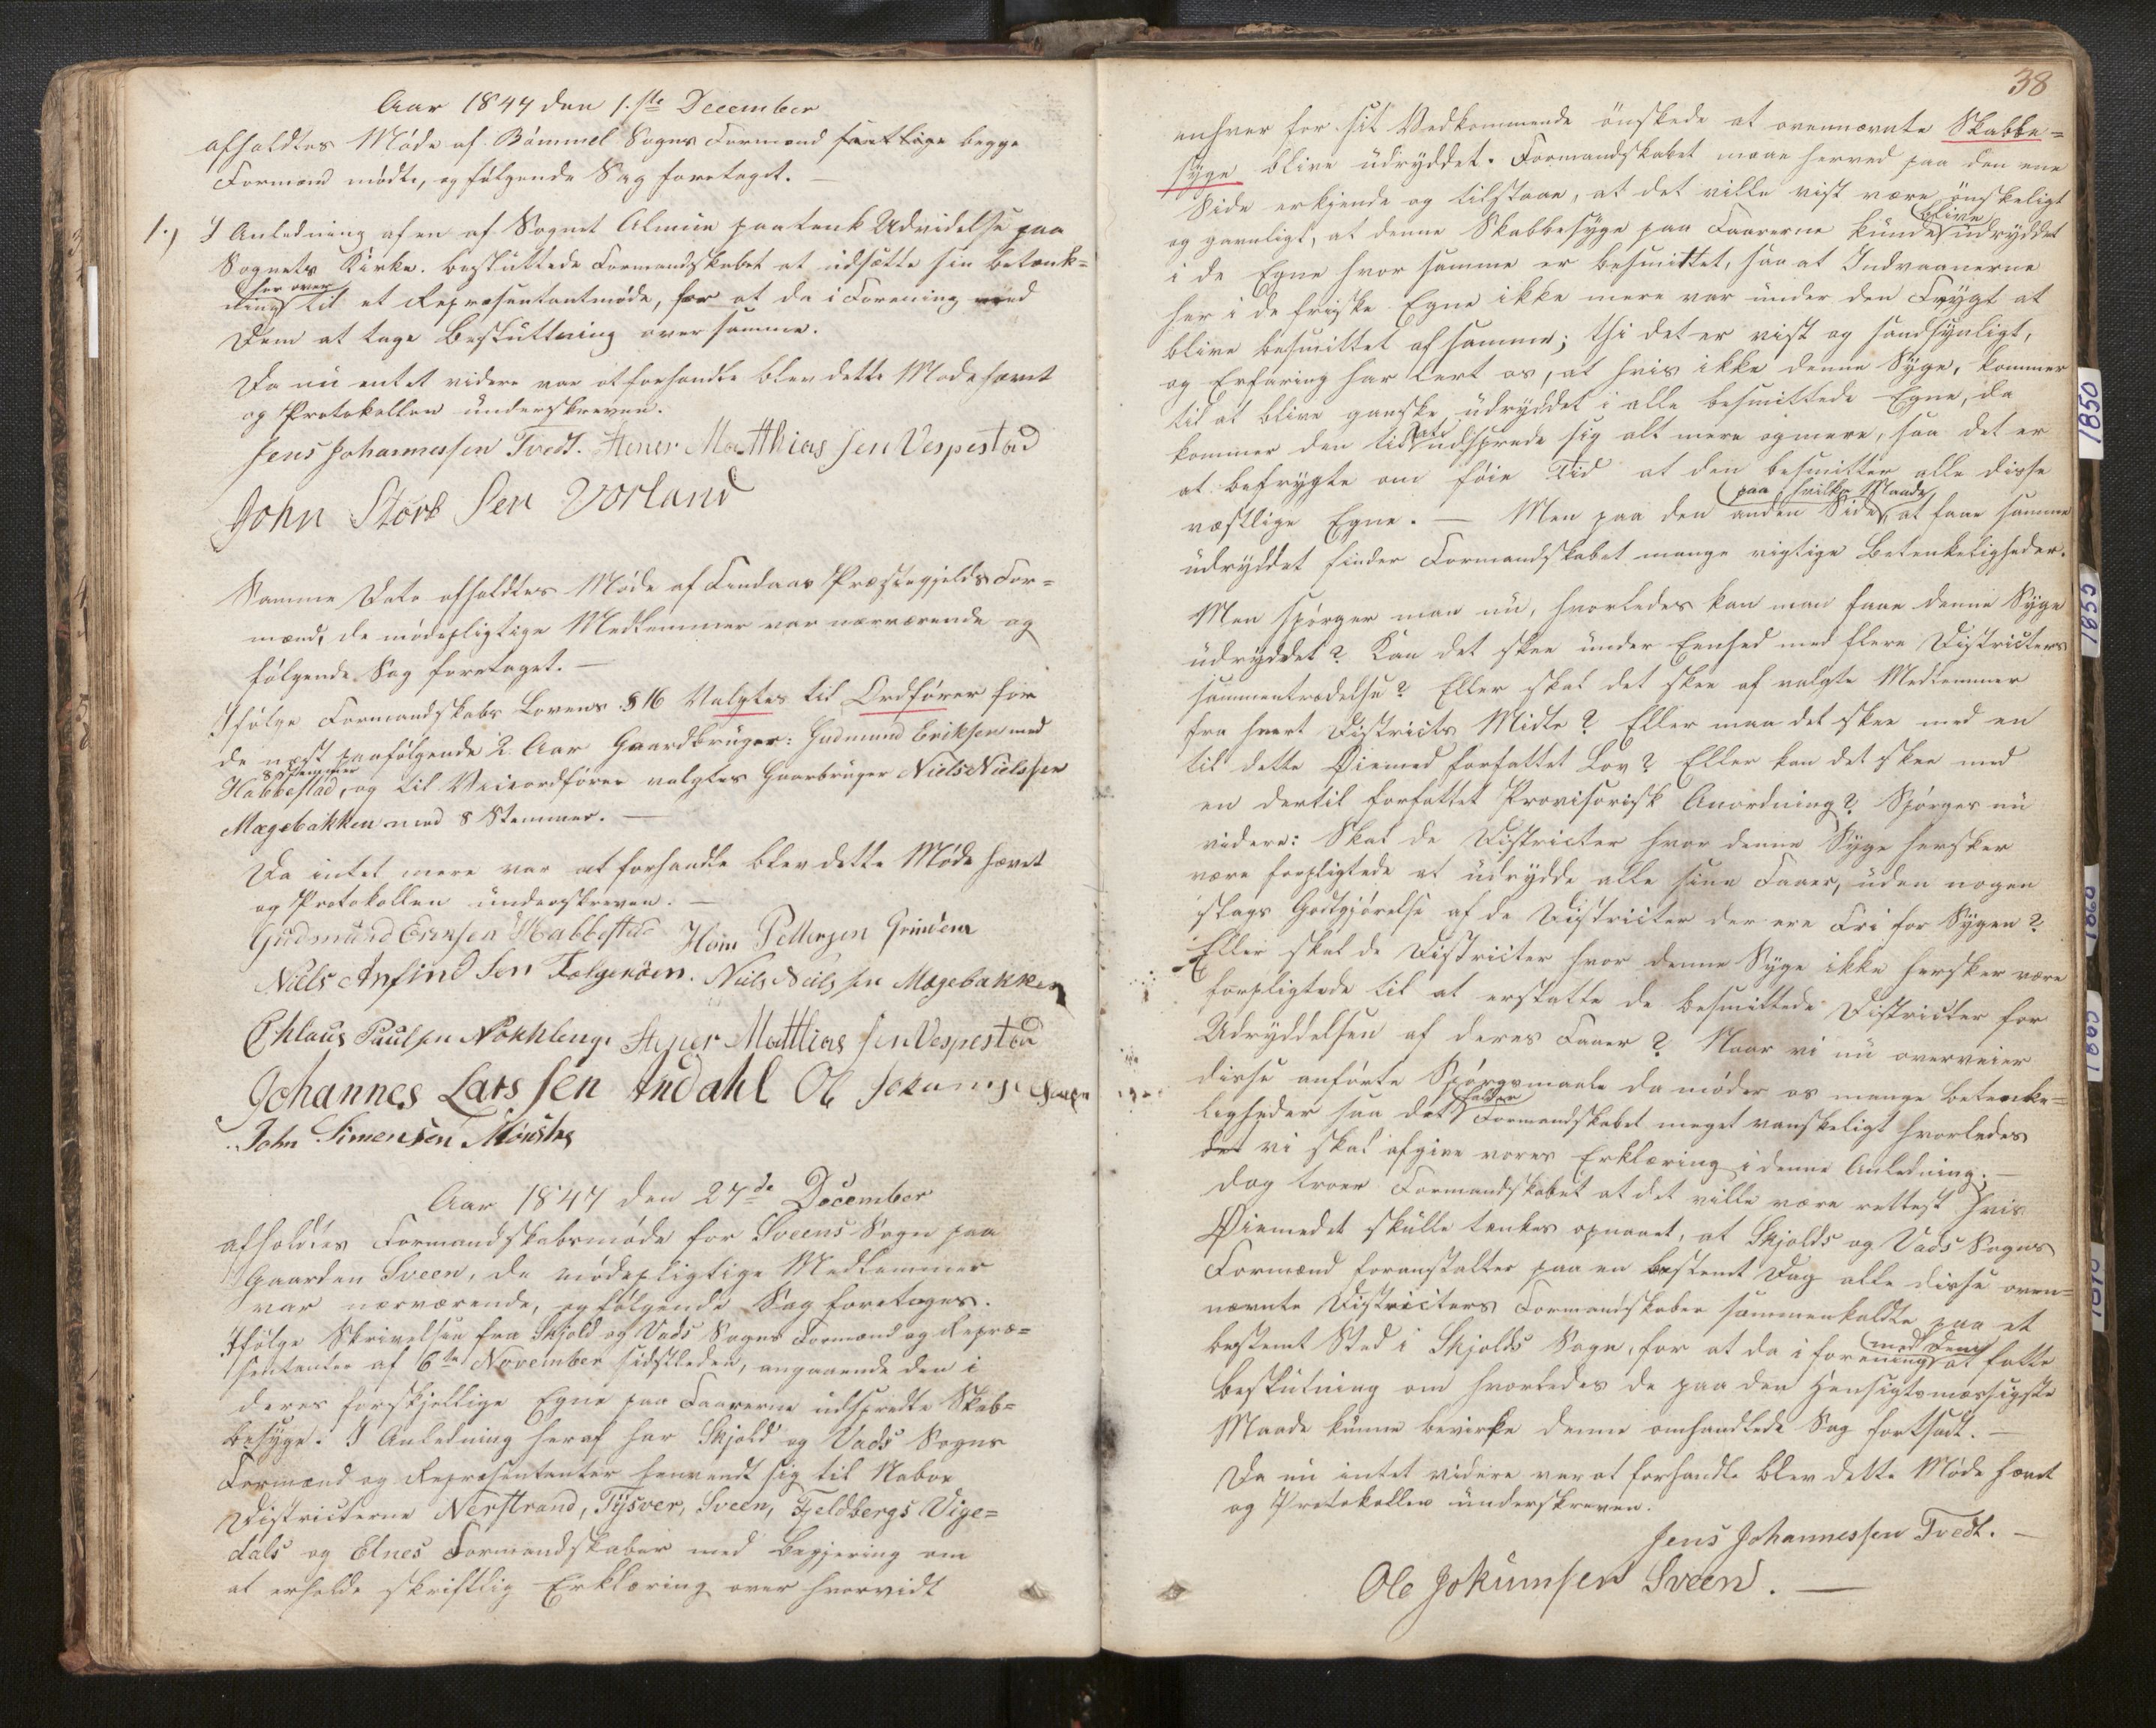 Aar 1847 den 1.ste December
afholdtes Møde af Bømmel Sogns Formænd samtlige begge
Formænd mødte, og følgende Sag foretaget. —
1.) I Anledning af en af Sognet Almue paatenk Udvidelse paa
Sognets Kirke. besluttede Formandskabet at udsætte sin betænk=
her over
ning til et Repræsentantmøde, for at da i Forening med
Dem at tage Besluttning over samme.
Da nu entet videre var at forhandle blev dette Møde hævet
og Protokollen underskreven.
Jens Johannessen Tvedt. Stener Matthias sen Vespestad
John Storb Sen Vorland
Samme Dato afholdtes Møde af Findaas Præstegjelds For=
mænd, de mødepligtige Medlemmer var nærværende og
følgende Sag foretaget. —
Ifølge Formandskabs Lovens §16 Valgtes til Ordfører for
de næst paafølgende 2 Aar Gaardbruger: Gudmund Eriksen med
8 Stemmer
Habbestad, og til Viceordfører valgtes Gaarbruger Niels Nielssen
Mægebakken med 8 Stemmer. —
Da intet mere var at forhandle blev dette Møde hævet
og Protokollen underskreven. —
Gudmund Eriksen Habbestad Pettersen Grinden
Niels Anfind Sen Folgerøen. Niels Niels sen Mægebakken
Chlaus Paulsen Nokhleng. Stener Matthias sen Vespestad
Johannes Lars sen Indahl Ole Jokumsen Sveen
John Simensen Mønster
Aar 1847 den 27de December
afholdtes Formandskabsmøde for Sveens Sogn paa
Gaarden Sveen, de mødepligtige Medlemmer
var nærværende, og følgende Sag foretoges.
Ifølge Skrivelsen fra Skjold og Vads Sogns Formænd og Repræ=
sentanter af 6te November sidstleden, angaaende den i
deres forskjellige Egne paa Faarerne udspredte Skab=
besyge. I Anledning heraf har Skjold og Vads Sogns
Formænd og Repræsentanter henvendt sig til Nabor
Districterne Nerstrand, Tysver, Sveen, Fjeldbergs Vige=
dals og Etnes Formandskaber med begjering om
at erholde skriftlig Erklæring over hvorvidt
38
enhver for sit Vedkommende ønskede at ovennævnte Skabbe=
syge blive udryddet. Formandskabet maae herved paa den ene
Side erkjende og tilstaae, at det ville vist være ønskeligt
blive
og gavnligt, at denne Skabbesyge paa Faarerne kunde udryddet
i de Egne hvor samme er besmittet, saa at Indvaanerne
her i de friske Egne ikke mere var under den Frygt at
blive besmittet af samme; thi det er vist og sandsynligt,
og Erfaring har lert os, at hvis ikke denne Syge, kommer
til at blive ganske udryddet i alle besmittede Egne, da
kommer den til udsprede sig alt mere og mere, saa det er
at befrygte om føie Tid at den besmitter alle disse
paa hvilke Maade
væstlige Egne. — Men paa den anden Side, at faae samme
udryddet finder Formandskabet mange vigtige Betenkeligheder.
Men spørger man nu, hvorledes kan man faae denne Syge
udryddet? Kan det skee under Eenhed med flere Districters
sammentrædelse? Eller skal det skee af valgte Medlemmer
fra hvert Districts Midte? Eller maa det skee med en
til dette Øiemed forfattet Lov? Eller kan det skee med
en dertil forfattet Provisorisk Anordning? Spørges nu
videre: Skal de Districter hvor denne Syge hersker
være forpligtede at udrydde alle sine Faaer, uden nogen
slags Godtgjørelse af de Districter der ere Fri for Sygen?
Eller skal de Districter hvor denne Syge ikke hersker være
forpligtede til at erstatte de besmittede Districter for
Udryddelsen af deres Faaer? Naar vi nu overveier
disse anførte Spørgsmaale da møder os mange betenke=
falder
ligheder saa det Formandskabet meget vanskeligt hvorledes
det vi skal afgive vores Erklæring i denne Anledning; —
dog troer Formandskabet at det ville være rettest hvis
Øiemedet skulle tenkes opnaaet, at Skjolds og Vads Sogns
Formænd foranstalter paa en bestemt Dag alle disse oven=
nævnte Districters Formandskaber sammenkaldte paa et
bestemt Sted i Skjolds Sogn, for at da i forening
med Dem
at fatte
beslutning om hvorledes de paa den Hensigtsmæssigste
Maade kunne bevirke denne omhandlede Sag fortsadt. —
Da nu intet videre var at forhandle blev dette Møde hævet
og Protokollen underskreven.
Jens Johannessen Tvedt. —
Ole Jokumsen Sveen. —
1850
1855
1860
1865